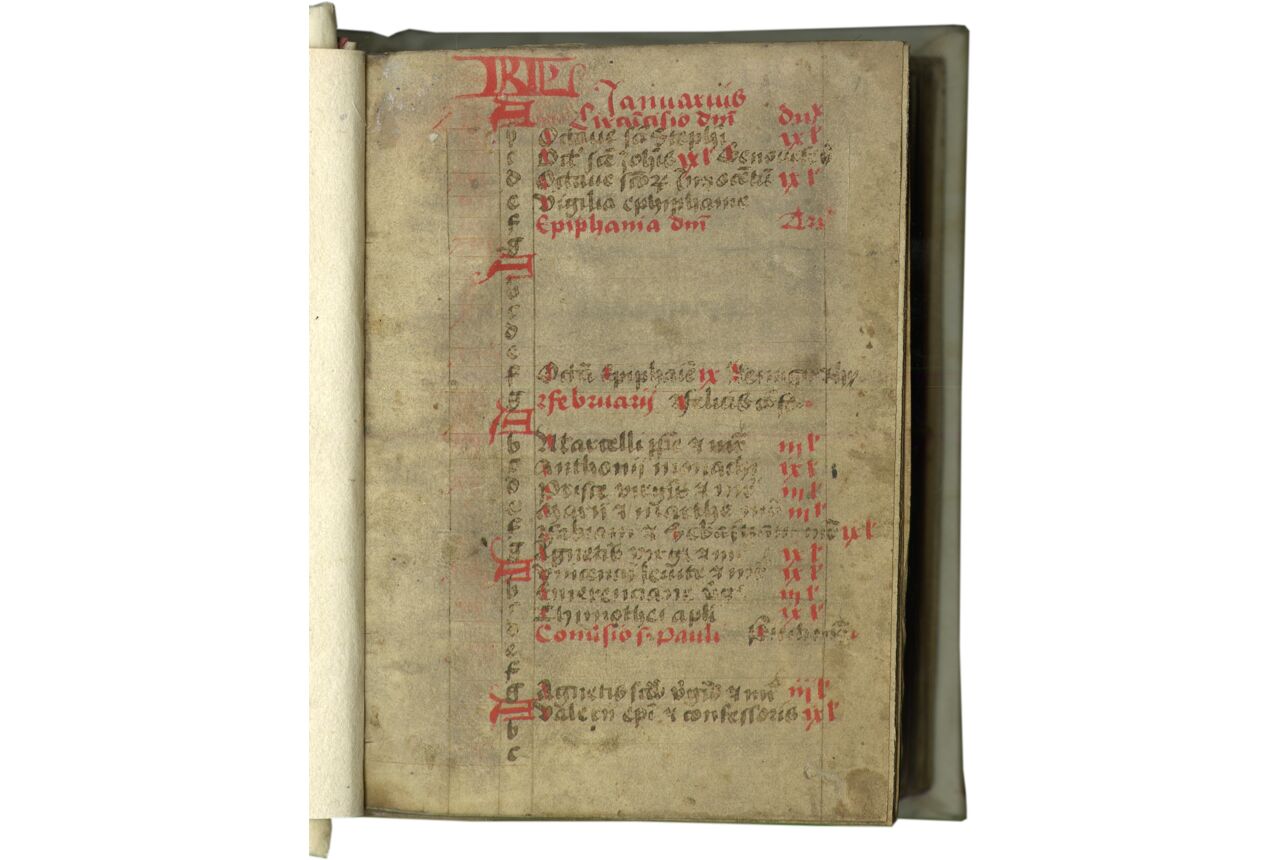 KL
Januarius
A Circu͂cisio dn͂i dux
b Octaue sc͂i Stephi ix l
c Oct' sc͂i Joh͂is ix l
d Octaue sc͂oꝝ Innoce͂tu͂ ix l
e Vigilia ephiphanie
f Epiphania dn͂i
g
A
b
c
d
e
f Octa͂ Epiphaie͂ ix
g februarij felicis
A
b Marcelli pp͂e ⁊ mr͂ iij l'
c Anthonij monachi ix l'
d Prisce virgi͂s ⁊ mr͂ iij l'
e Marij ⁊ marthe iij l'
f Fabiani ⁊ Sebastiani ix l'
g Agnetis virgi ⁊ m ix l'
A Vincencij leuite ⁊ mr͂ ix l'
b Emerenciane iij l'
c Thimothei apli ix l'
d Conu͂sio s. Pauli
e
f
g Agnetis sc͂do v͂gi͂s ⁊ mr͂ iij l'
A Valerij ep͂i ⁊ confessoris ix l'
b
c